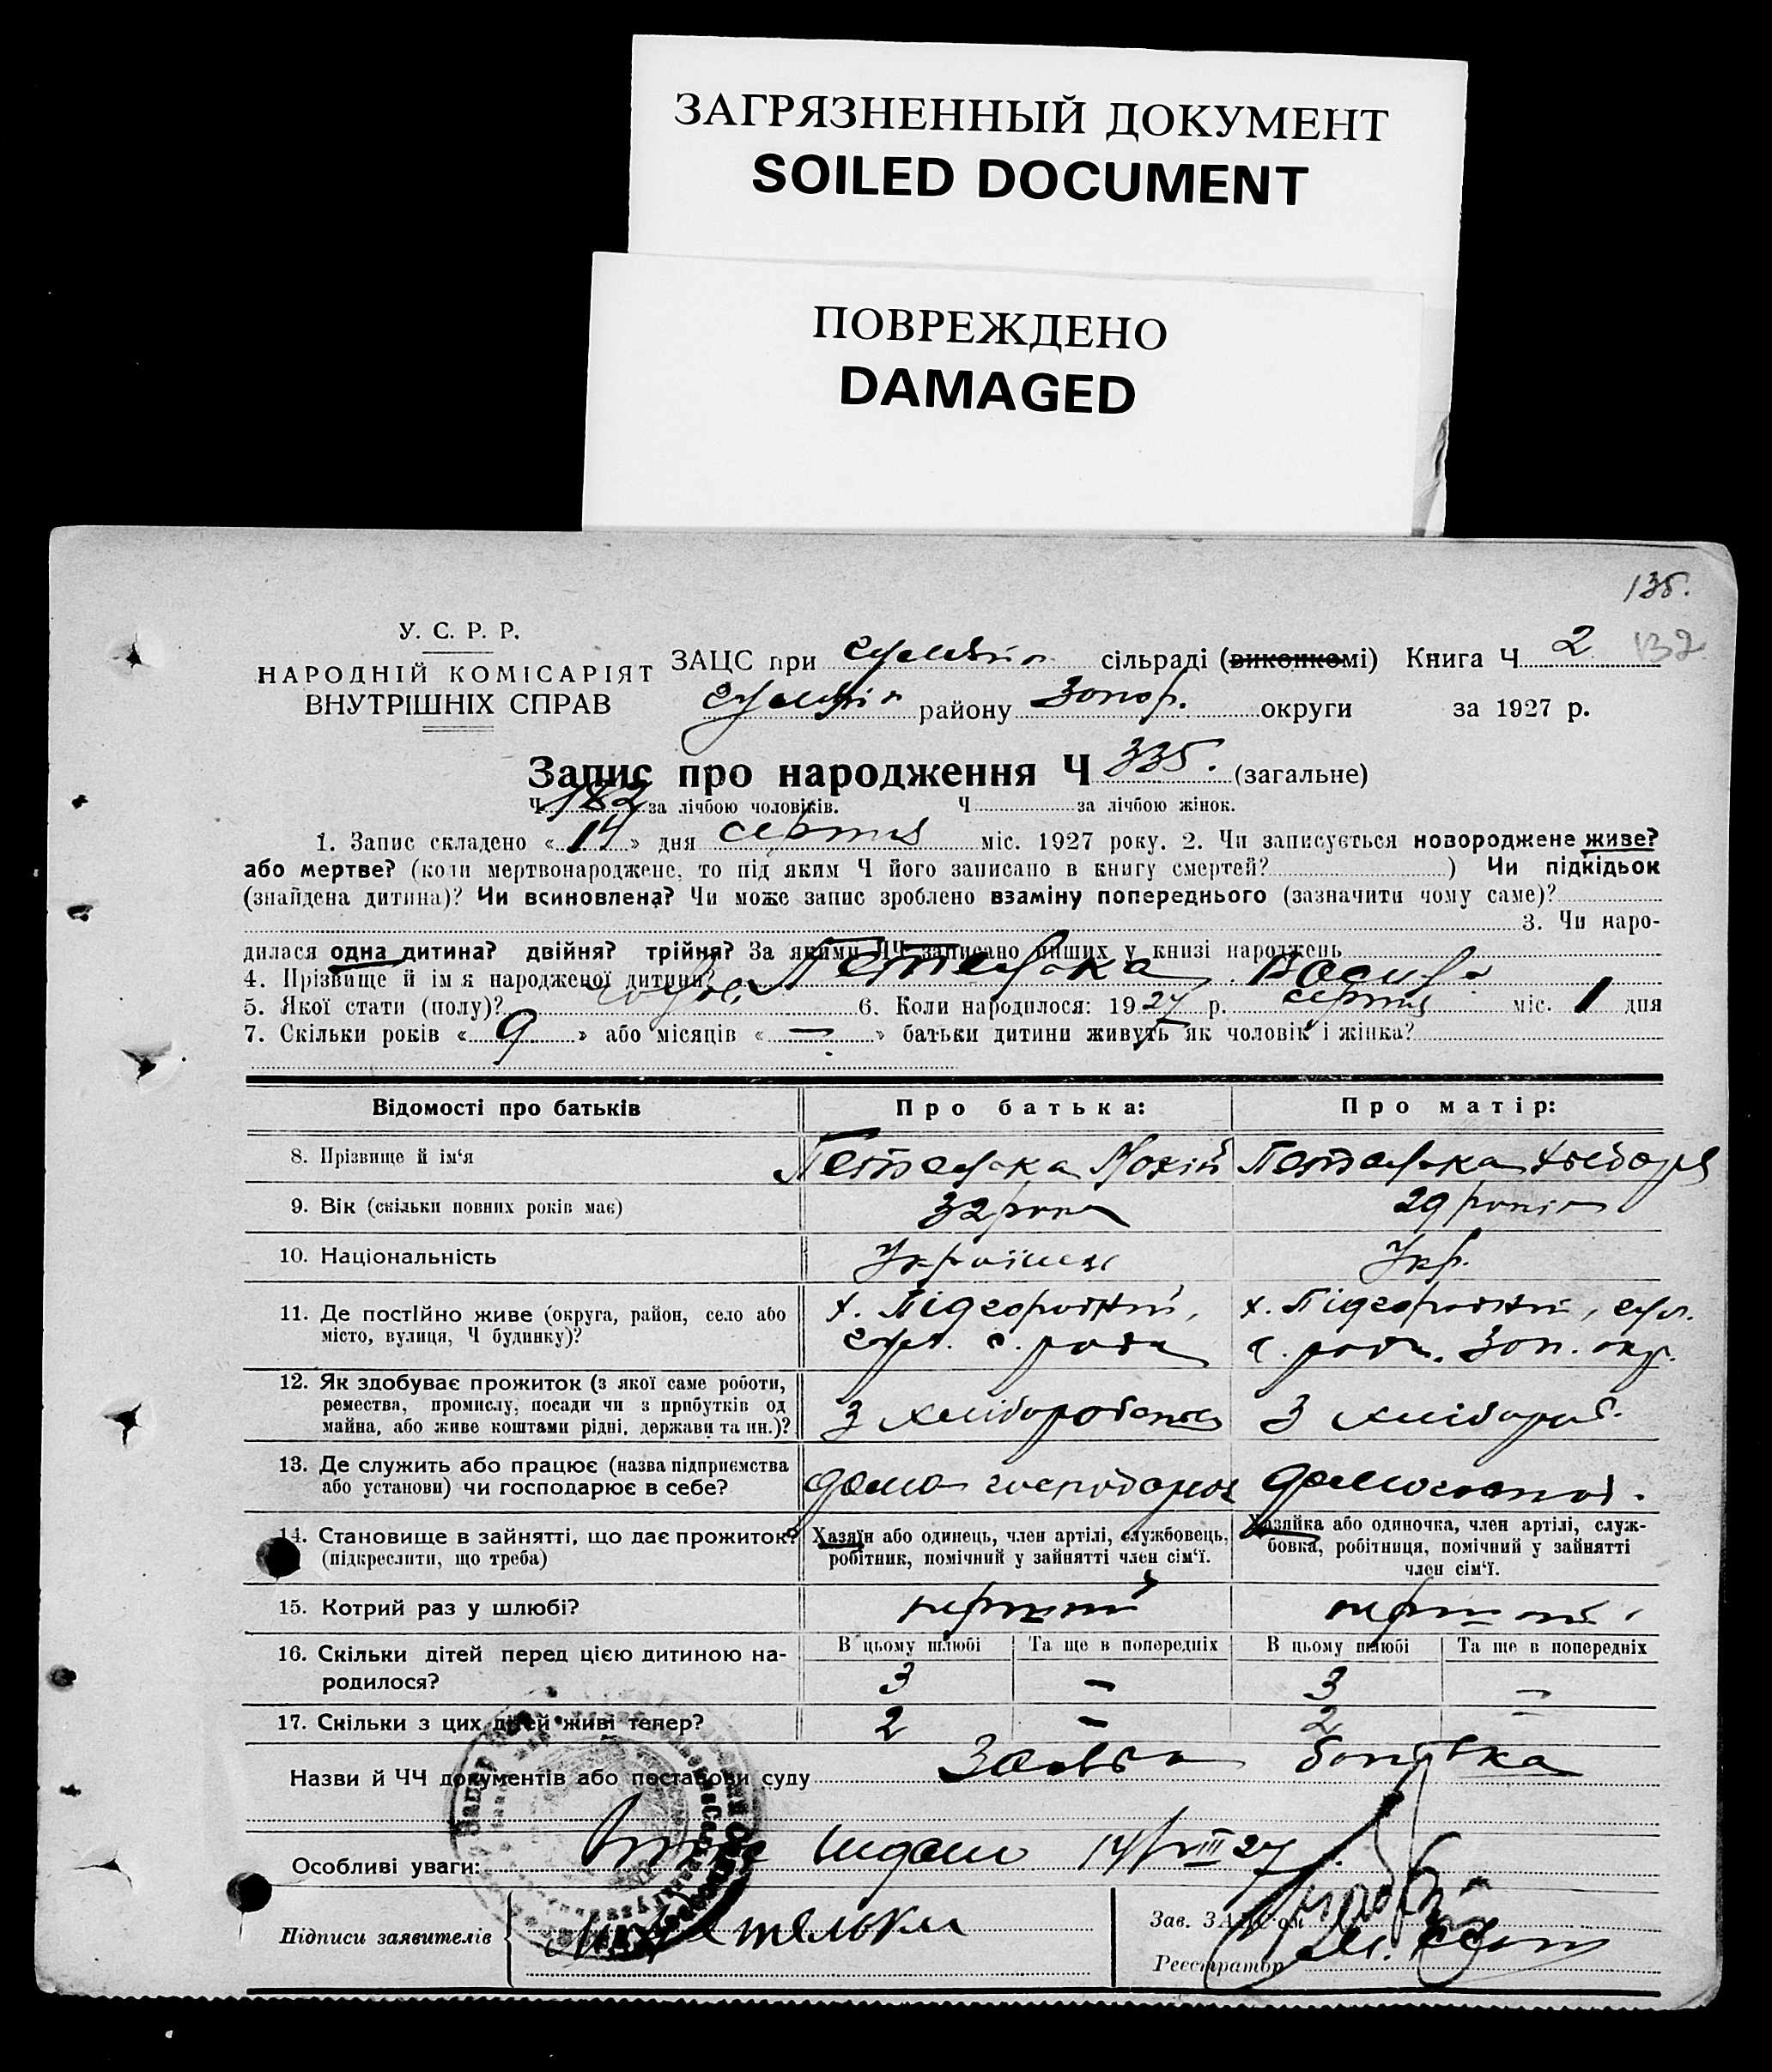 ЗАГРЯЗНЕННЫЙ ДОКУМЕНТ
SOILED DOCUMENT
ПОВРЕЖДЕНО
DAMAGED
135.
132
У. С. Р. Р.
НАРОДНІЙ КОМІСАРІЯТ
ВНУТРІШНІХ СПРАВ
ЗАЦС при сільраді (виконкомі) Книга Ч 2
району Запор. округи за 1927 р.
Запис про народження Ч 335. (загальне)
Ч 182 за лічбою чоловіків. Ч за лічбою жінок.
1. Запис складено «14» дня серпня міс. 1927 року. 2. Чи записується новороджене живе?
або мертве? (коли мертвонароджене, то під яким Ч його записано в книгу смертей? ) Чи підкідьок
(знайдена дитина)? Чи всиновлена? Чи може запис зроблено взаміну попереднього (зазначити чому саме)?
3. Чи наро-
дилася одна дитина? двійня? трійня? За якими ЧЧ записано инших у книзі народжень
4. Прізвище й ім'я народженої дитини?
5. Якої стати (полу)? 6. Коли народилося: 1927 р. серпня міс. 1 дня
7. Скільки років «9» або місяців «—» батьки дитини живуть як чоловік і жінка?
Відомості про батьків Про батька: Про матір:
8. Прізвище й ім'я
9. Вік (скільки повних років має) 32 роки 29 років
10. Національність Українец Укр.
11. Де постійно живе (округа, район, село або
місто, вулиця, Ч будинку)?
х. Підгородній,
х. Підгородній,
Зап. окр.
12. Як здобуває прожиток (з якої саме роботи,
ремества, промислу, посади чи з прибутків од
майна, або живе коштами рідні, держави та ин.)?
З хліборобства З хлібороб.
13. Де служить або працює (назва підприємства
або установи) чи господарює в себе?
дома господарює домогоспод.
14. Становище в зайнятті, що дає прожиток?
(підкреслити, що треба)
Хазяїн або одинець, член артілі, службовець,
робітник, помічний у зайнятті член сім'ї.
Хазяйка або одиночка, член артілі, служ-
бовка, робітниця, помічний у зайнятті
член сім'ї.
15. Котрий раз у шлюбі? перший перший
16. Скільки дітей перед цією дитиною на-
родилося?
В цьому шлюбі Та ще в попередніх В цьому шлюбі Та ще в попередніх
3 — 3 —
17. Скільки з цих дітей живі тепер? 2 — 2 —
Назви й ЧЧ документів або постанови суду Заява батька
Особливі уваги: 14/VIII 27
Підписи заявителів
Зав. ЗАЦСом
Реєстратор